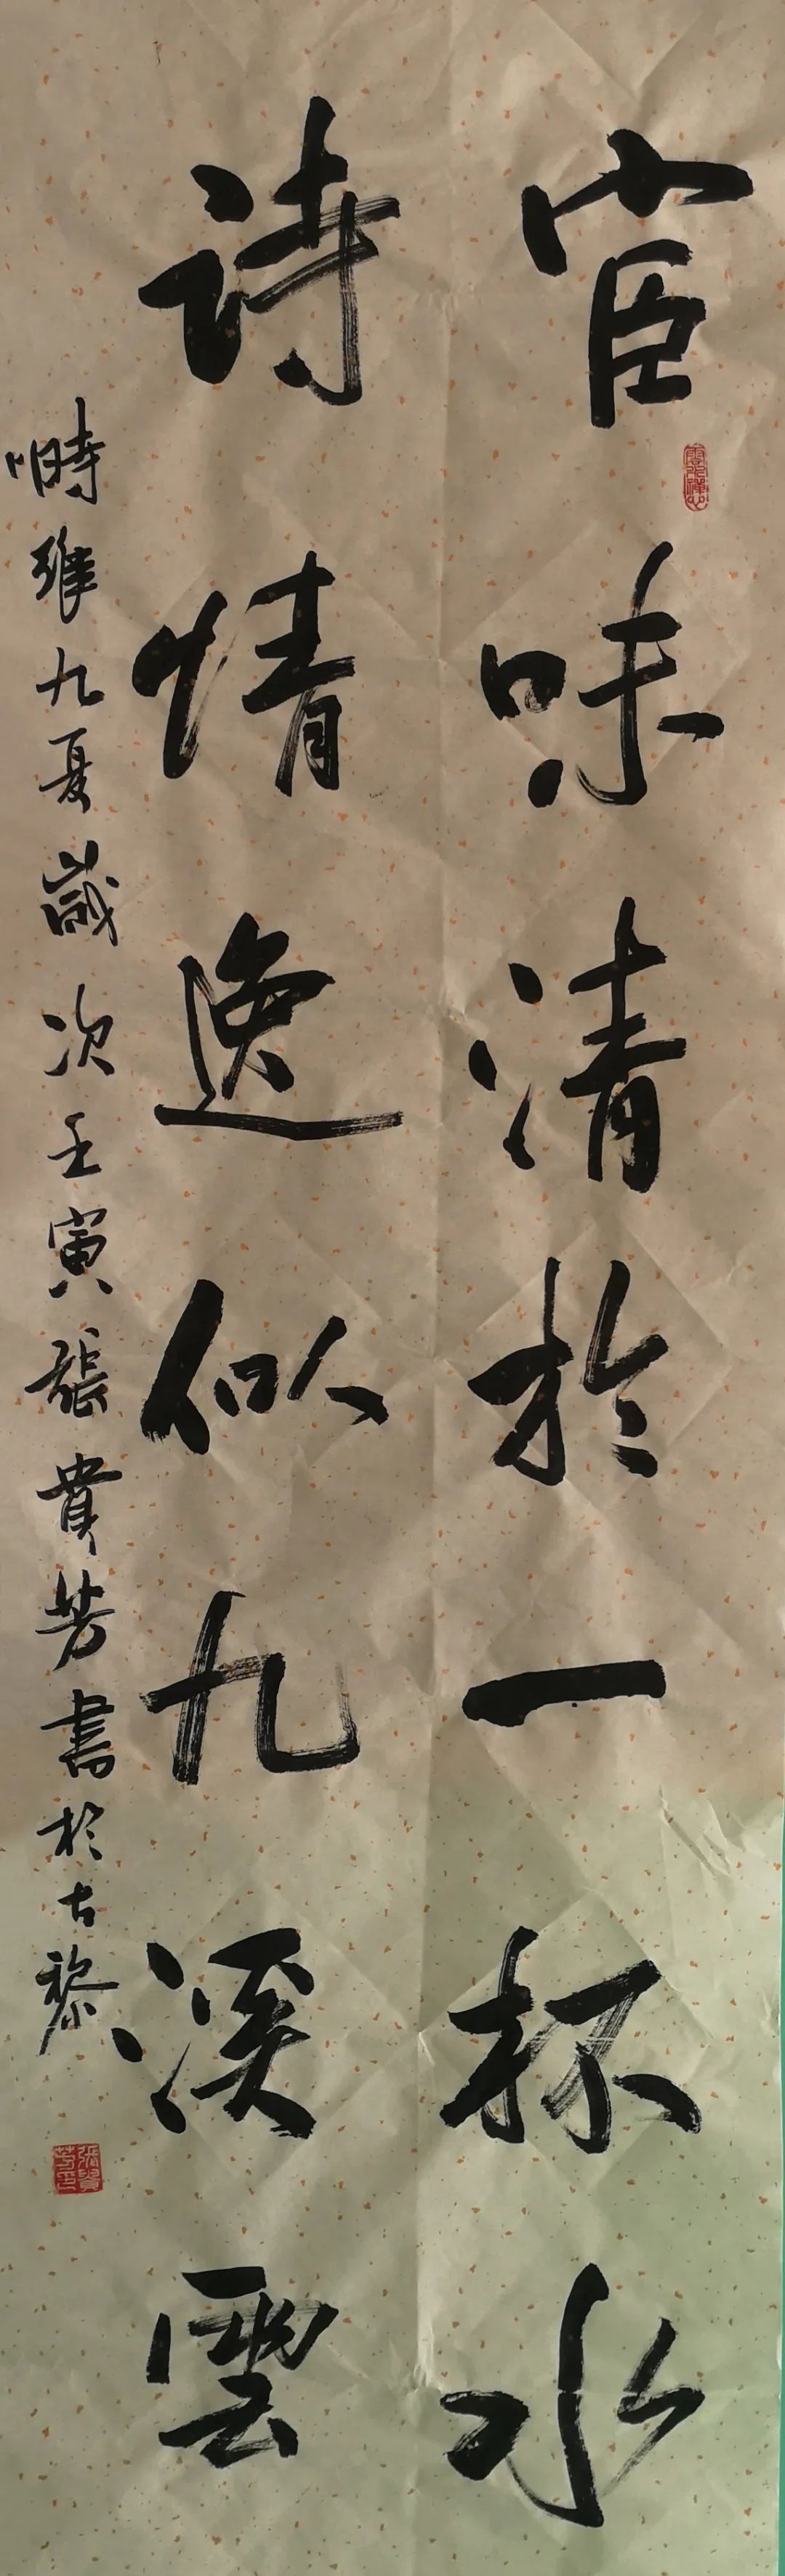 宦味清於一杯水
詩情逸似九溪雲
時維九夏歲次壬寅張貴芳書於古黎
張貴芳印